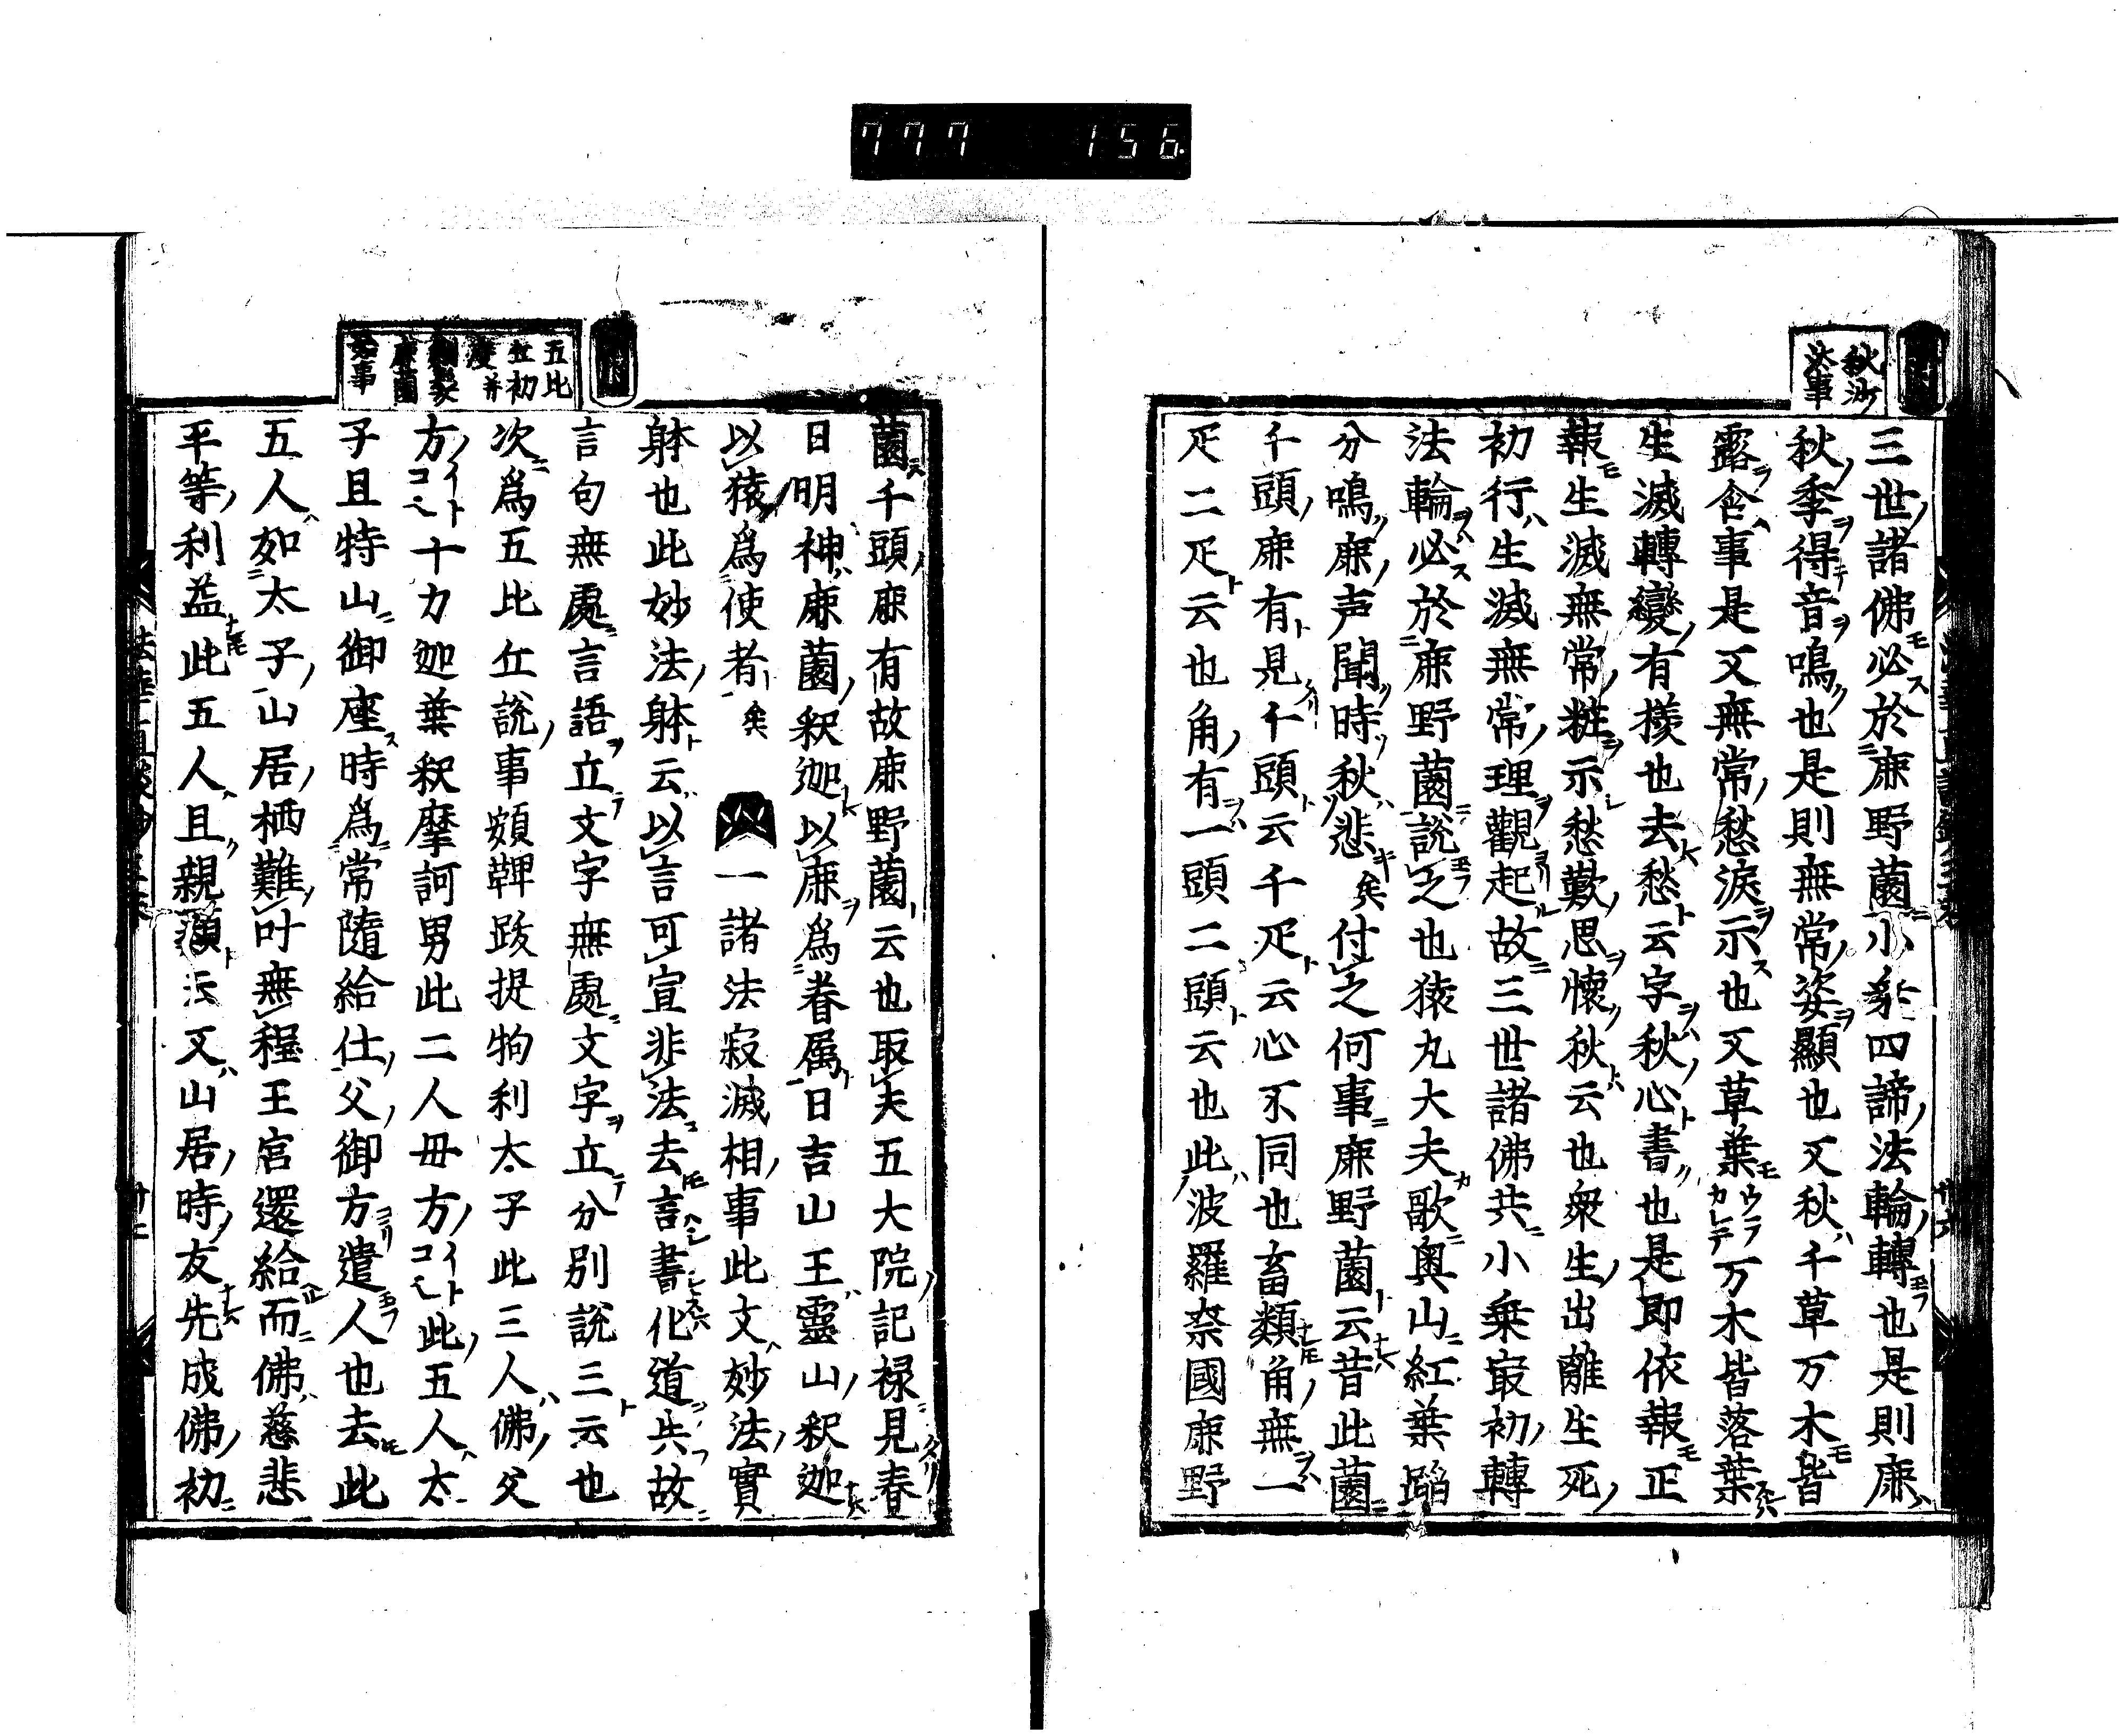 777 156
秋沙
汰事
三世諸佛必於鹿野薗小乘四諦法輪轉也是則鹿
秋季得音鳴也是則無常姿顯也又秋千草万木皆
露含事是又無常愁淚示也又草葉ウラカレテ万木皆落葉
生滅轉變有様也去愁云字秋心書也是即依報正
報生滅無常粧示愁歎思懷秋云也衆生出離生死
初行生滅無常理觀起故三世諸佛共小乗最初轉
法輪必於鹿野薗說之也猿丸大夫歌奥山紅葉蹈
分鳴鹿声聞時秋悲矣付之何事鹿野薗云昔此薗
千頭鹿有見千頭云千疋云心不同也畜類角無一
疋二疋云也角有一頭二頭云也此波羅奈國鹿野
五比
丘初
度并
鹿薗
事
薗千頭鹿有故鹿野薗云也取夫五大院記禄見春
日明神鹿薗釈迦以鹿為眷属日吉山王霊山釈迦
以猿爲使者矣 一諸法寂滅相事此文妙法實
躰也此妙法躰云以言可宣非法去言書化道共故
言句無處言語立文字無處文字立分別說三云也
次爲五比丘說事頞鞞跋提拘利太子此三人佛父
方イトコ十力迦葉釈摩訶男此二人母方イトコ此五人太
子且特山御座時爲常隨給仕父御方遣人也去此
五人如太子山居栖難叶無程王宮還給而佛慈悲
平等利益此五人且親類云又山居時友先成佛初